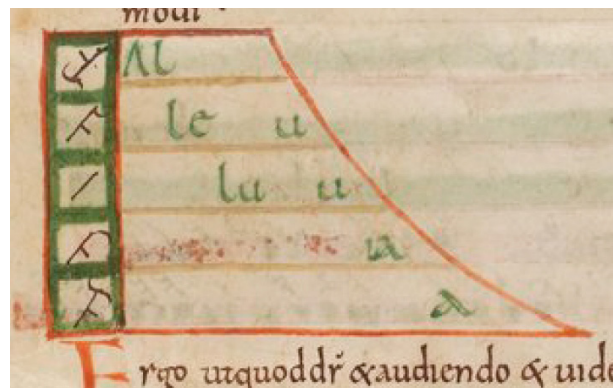 modi
Al
le u
lu u
ia
a
Ergo utquoddr̄ &audiendo & uid